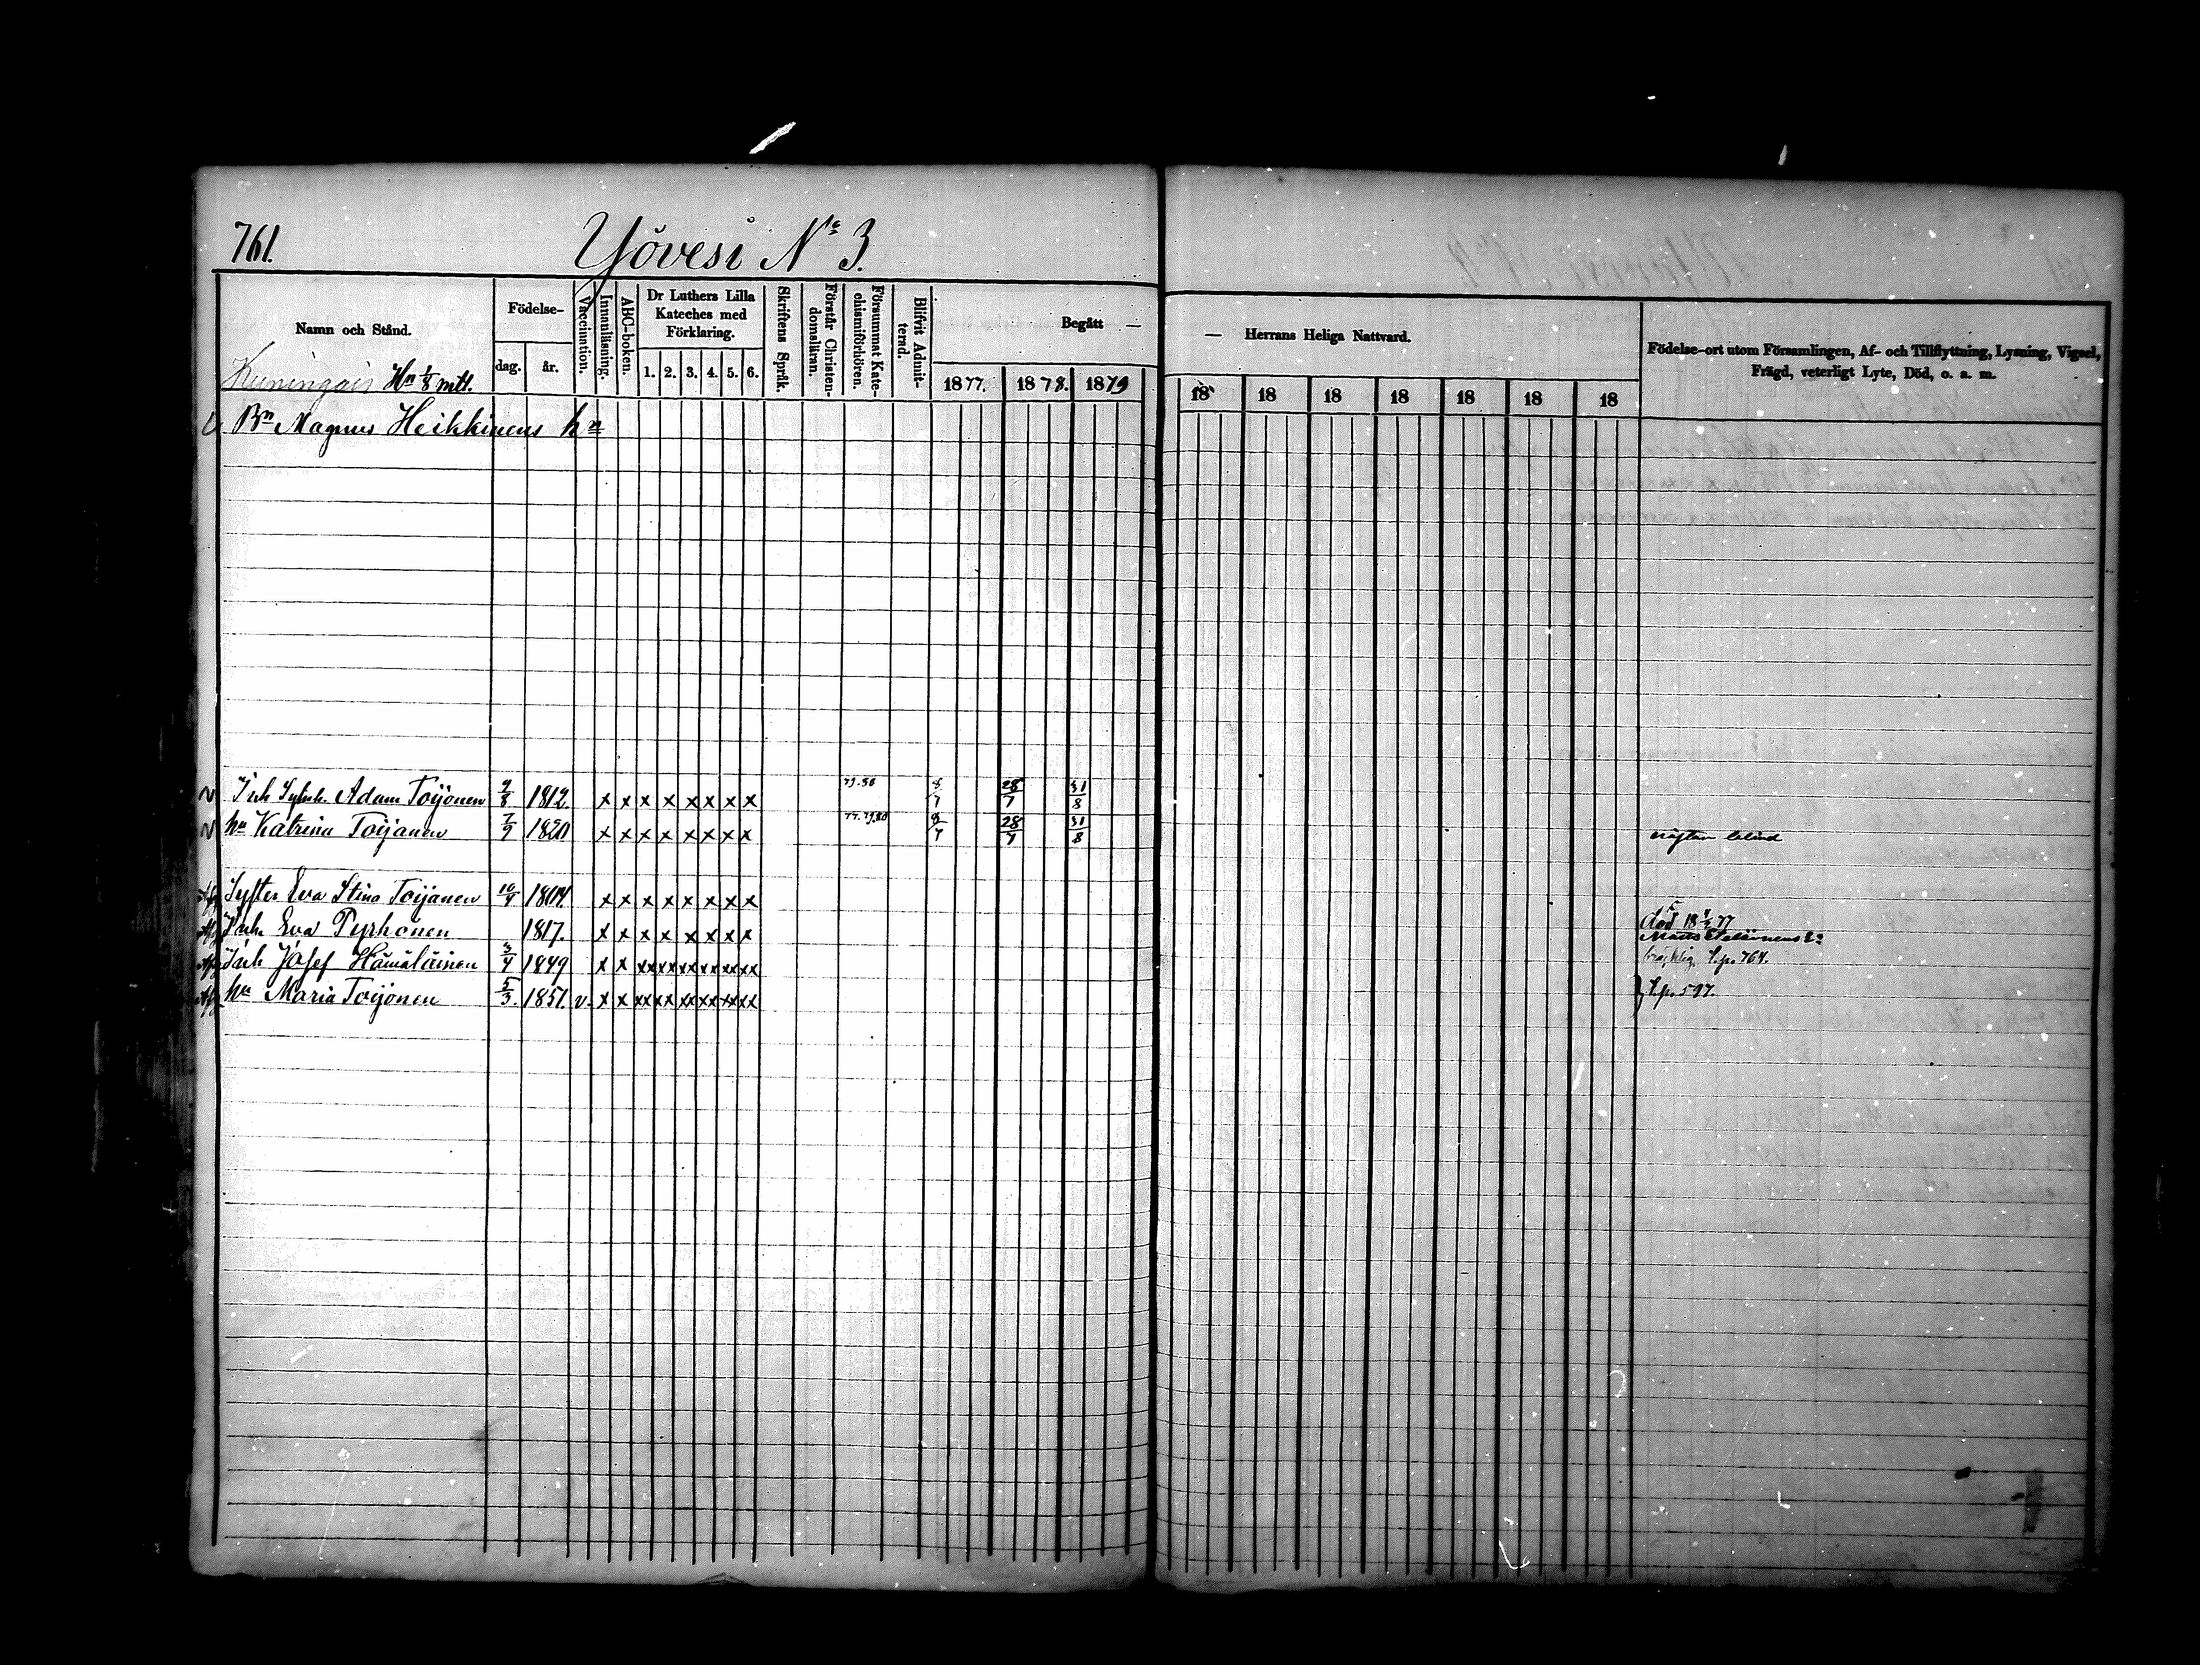 761. Yövesi No 3.
Namn och Stånd. Födelse- dag. år. Vaccination. Innanläsning. ABC-boken. Dr Luthers Lilla Kateches med Förklaring. 1. 2. 3. 4. 5. 6. Skriftens Språk. Förstår Christendomsläran. Försummat Katechismiförhören. Blifvit Admitterad. Begått — 1877. 1878. 1879
— Herrans Heliga Nattvard. 18 18 18 18 18 18 18
Födelse-ort utom Församlingen, Af- och Tillflyttning, Lysning, Vigsel, Frägd, veterligt Lyte, Död, o. a. m.
Kuningais Hn 1/8 mtl.
Bn Magnus Heikkinens hn
Inh Adam Toijonen 9/8 1812. x x x x x x x x 28/7 31/8
hu Katrina Toijanen 7/9 1820 x x x x x x x x 28/7 31/8 blind
Syster Eva Stina Toijanen 10/9 1804. x x x x x x x x
Inh. Eva Pyrhönen 1817. x x x x x x x x död 18 77
Inh Josef Hämäläinen 3/4 1849 x x xx xx xx xx xx xx S.p. 764.
hu Maria Toijonen 5/3. 1851. v. x x xx xx xx xx xx xx S.p. 597.